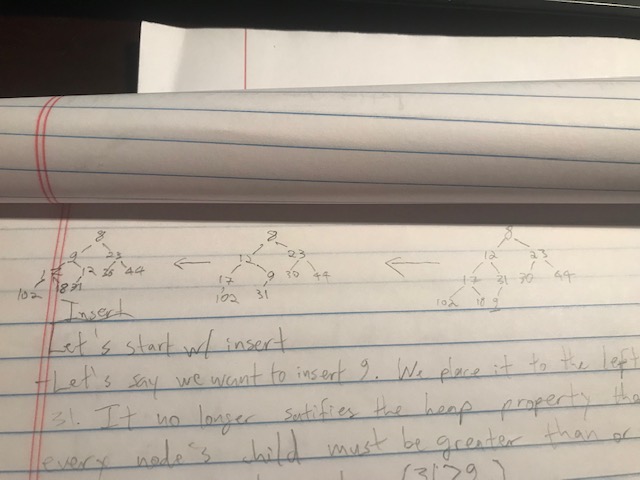 8 8 8
9 23 12 23 12 23
12 44 17 9 30 44 17 31 30 44
102 102 31 102 18 9
Insert
Let's start w/ insert
Let's say we want to insert 9. We place it to the left
31. It no longer satifies the heap property tha
every node's child must be greater than or
(31>9)